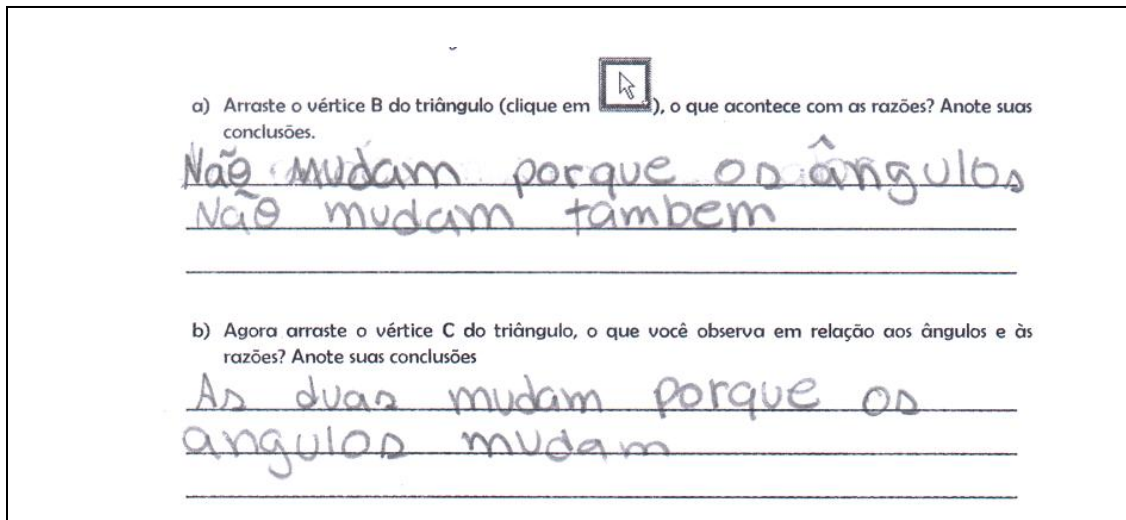 a) Arraste o vértice B do triângulo (clique em ), o que acontece com as razões? Anote suas
conclusões.
Não mudam porque os ângulos
Não mudam tambem
b) Agora arraste o vértice C do triângulo, o que você observa em relação aos ângulos e às
razões? Anote suas conclusões
As duas mudam porque os
angulos mudam